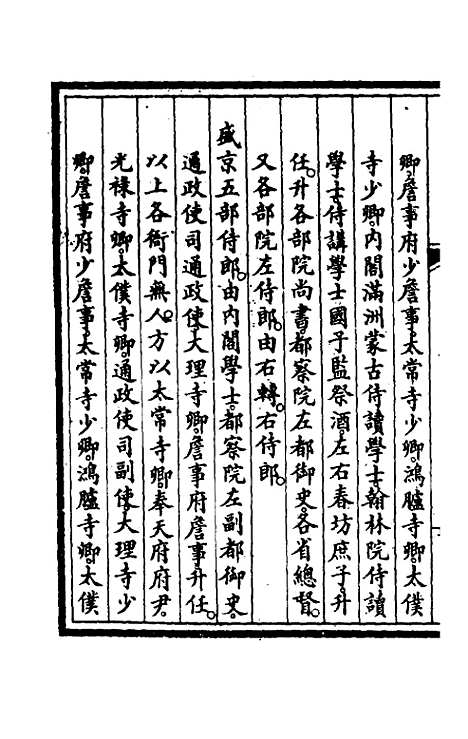 卿詹事府少詹事太常寺少卿鴻臚寺卿太僕
寺少卿內閣滿洲蒙古侍讀學士翰林院侍讀
學士侍講學士國子監祭酒左右春坊庶子升
任升各部院尚書都察院左都御史各省總督
又各部院左侍郎由右轉右侍郎
盛京五部侍郎由內閣學士都察院左副都御史
通政使司通政使大理寺卿詹事府詹事升任
以上各衙門無人方以太常寺卿奉天府府尹
光祿寺卿太僕寺卿通政使司副使大理寺少
卿詹事府少詹事太常寺少卿鴻臚寺卿太僕